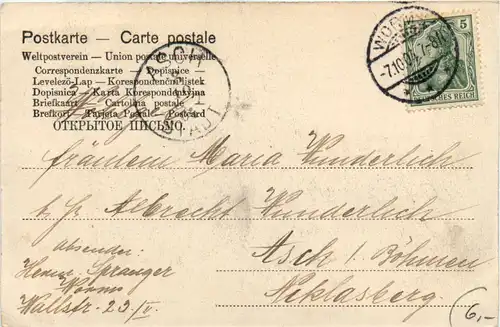 Postkarte — Carte postale
Weltpostverein – Union postale universelle
Correspondenzkarte – Dopisnice –
Levelező-Lap – Korespondenčni listek
Dopisnica – Karta Korespondencyjna
Briefkaart – Cartolina postale
Brefkort – Tarjeta Postal – Postcard
ОТКРЫТОЕ ПИСЬМО.
WORMS
-7.10.04. 7-8N
5
DEUTSCHES REICH
ASCH
STADT
Fräulein Maria Wunderlich
Albrecht Wunderlich
Asch i/ Böhmen
Niklasberg
Absender:
Herm. Spranger
Worms
Wallstr. 23/IV.
6,-